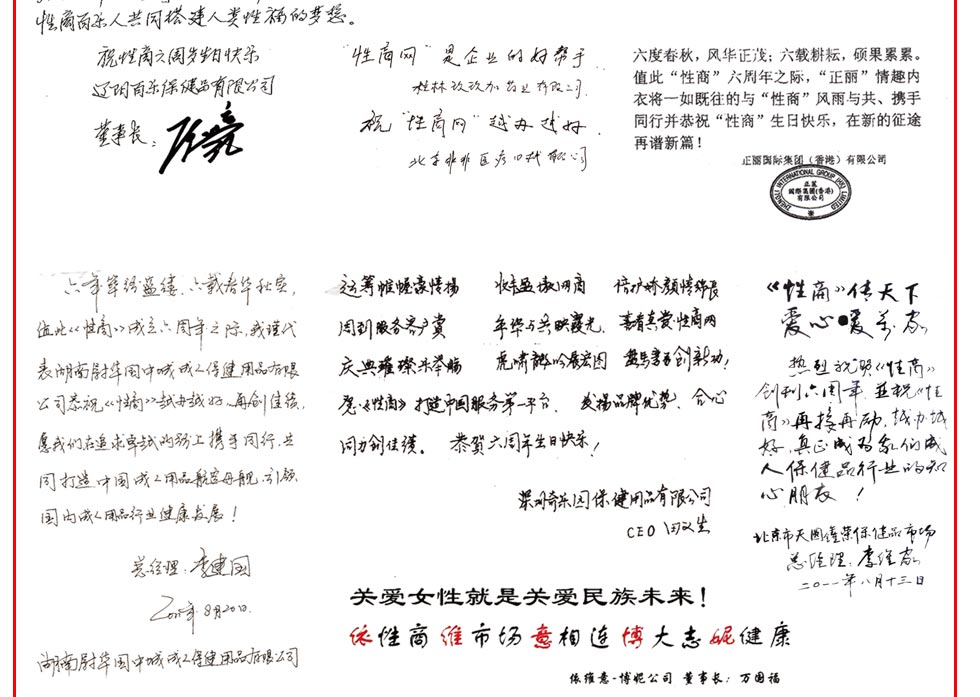 性商百乐人共同搭建人类性福的梦想。
祝性商六周岁生日快乐
辽阳百乐保健品有限公司
董事长：
"性商网"是企业的好帮手
桂林玫玫加药业有限公司
祝"性商网"越办越好
北京非非医疗口械有限公司
六度春秋，风华正茂；六载耕耘，硕果累累。
值此"性商"六周年之际，"正丽"情趣内
衣将一如既往的与"性商"风雨与共、携手
同行并恭祝"性商"生日快乐，在新的征途
再谱新篇！
正丽国际集团（香港）有限公司
ZHENGLI INTERNATIONAL GROUP (HK) LIMITED
正麗
國際集團(香港)
有限公司
六年筚路蓝缕，六载春华秋实，
值此《性商》成立六周年之际，我谨代
表湖南尉华国中城成人保健用品有限
公司恭祝《性商》越办越好、再创佳绩，
愿我们在追求卓越的路上携手同行，共
同打造中国成人用品航空母舰，引领
国内成人用品行业健康发展！
总经理：李建国
8月20日
湖南尉华国中城成人保健用品有限公司
运筹帷幄豪情扬
周到服务客户赏 年华与共映霞光
庆典璀璨乐举觞 虎啸龙吟展宏图
愿《性商》打造中国服务第一平台，发扬品牌优势，合心
同力创佳绩。恭贺六周年生日快乐！
深圳奇乐园保健用品有限公司
CEO
《性商》传天下
爱心暖万家
热烈祝贺《性商》
创刊六周年，并祝《性
商》再接再励，越办越
好，真正成为我们成
人保健品行业的知
心朋友！
北京市天圆隆荣保健品市场
总经理：李维家
二〇一一年八月十三日
关爱女性就是关爱民族未来！
依性商维市场意相连博大志妮健康
依维意-博妮公司 董事长：万国福